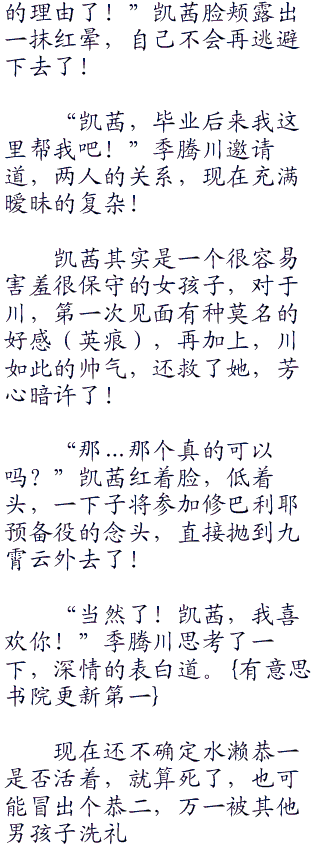 的理由了！”凯茜脸颊露出
一抹红晕，自己不会再逃避
下去了！
“凯茜，毕业后来我这
里帮我吧！”季腾川邀请
道，两人的关系，现在充满
暧昧的复杂！
凯茜其实是一个很容易
害羞很保守的女孩子，对于
川，第一次见面有种莫名的
好感（英痕），再加上，川
如此的帅气，还救了她，芳
心暗许了！
“那…那个真的可以
吗？”凯茜红着脸，低着
头，一下子将参加修巴利耶
预备役的念头，直接抛到九
霄云外去了！
“当然了！凯茜，我喜
欢你！”季腾川思考了一
下，深情的表白道。{有意思
书院更新第一}
现在还不确定水濑恭一
是否活着，就算死了，也可
能冒出个恭二，万一被其他
男孩子洗礼